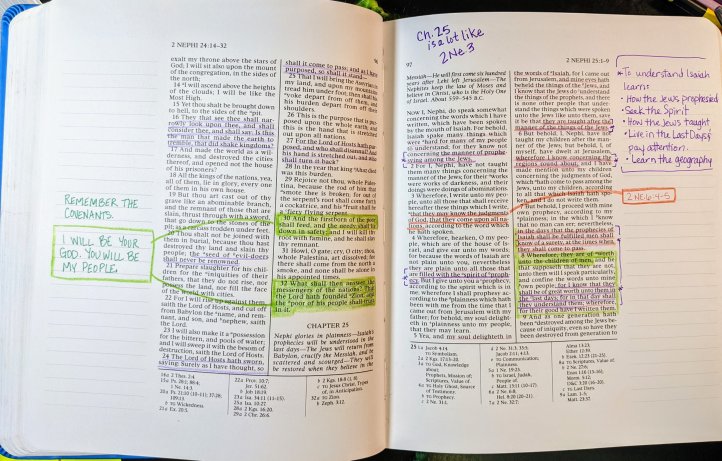 2 NEPHI 24:14–32
exalt my throne above the stars of
God; I will sit also upon the mount
of the congregation, in the sides of
the north;
14 I will ascend above the heights
of the clouds; I will be like the
Most High.
15 Yet thou shalt be brought down
to hell, to the sides of the pit.
16 They that see thee shall nar-
rowly look upon thee, and shall
consider thee, and shall say: Is this
the man that made the earth to
tremble, that did shake kingdoms?
17 And made the world as a wil-
derness, and destroyed the cities
thereof, and opened not the house
of his prisoners?
18 All the kings of the nations, yea,
all of them, lie in glory, every one
of them in his own house.
19 But thou art cast out of thy
grave like an abominable branch,
and the remnant of those that are
slain, thrust through with a sword,
that go down to the stones of the
pit; as a carcass trodden under feet.
20 Thou shalt not be joined with
them in burial, because thou hast
destroyed thy land and slain thy
people; the seed of evil-doers
shall never be renowned.
21 Prepare slaughter for his chil-
dren for the iniquities of their
fathers, that they do not rise, nor
possess the land, nor fill the face
of the world with cities.
22 For I will rise up against them,
saith the Lord of Hosts, and cut off
from Babylon the name, and rem-
nant, and son, and nephew, saith
the Lord.
23 I will also make it a possession
for the bittern, and pools of water;
and I will sweep it with the besom of
destruction, saith the Lord of Hosts.
24 The Lord of Hosts hath sworn,
saying: Surely as I have thought, so
REMEMBER THE
COVENANTS.
I WILL BE YOUR
GOD. YOU WILL BE
MY PEOPLE.
shall it come to pass; and as I have
purposed, so shall it stand—
25 That I will bring the Assyrian in
my land, and upon my mountains
tread him under foot; then shall his
yoke depart from off them, and
his burden depart from off their
shoulders.
26 This is the purpose that is pur-
posed upon the whole earth; and
this is the hand that is stretched
out upon all nations.
27 For the Lord of Hosts hath pur-
posed, and who shall disannul? And
his hand is stretched out, and who
shall turn it back?
28 In the year that king Ahaz died
was this burden.
29 Rejoice not thou, whole Pales-
tina, because the rod of him that
smote thee is broken; for out of
the serpent's root shall come forth
a cockatrice, and his fruit shall be
a fiery flying serpent.
30 And the firstborn of the poor
shall feed, and the needy shall lie
down in safety; and I will kill thy
root with famine, and he shall slay
thy remnant.
31 Howl, O gate; cry, O city; thou,
whole Palestina, art dissolved; for
there shall come from the north a
smoke, and none shall be alone in
his appointed times.
32 What shall then answer the
messengers of the nations? That
the Lord hath founded Zion, and
the poor of his people shall trust
in it.
CHAPTER 25
Nephi glories in plainness—Isaiah's
prophecies will be understood in the
last days—The Jews will return from
Babylon, crucify the Messiah, and be
scattered and scourged—They will
be restored when they believe in the
Ch. 25
is a lot like
2 Ne 3
97
2 NEPHI 25:1–9
Messiah—He will first come six hundred
years after Lehi left Jerusalem—The
Nephites keep the law of Moses and
believe in Christ, who is the Holy One
of Israel. About 559–545 B.C.
Now I, Nephi, do speak somewhat
concerning the words which I have
written, which have been spoken
by the mouth of Isaiah. For behold,
Isaiah spake many things which
were hard for many of my people
to understand; for they know not
concerning the manner of prophe-
sying among the Jews.
2 For I, Nephi, have not taught
them many things concerning the
manner of the Jews; for their works
were works of darkness, and their
doings were doings of abominations.
3 Wherefore, I write unto my peo-
ple, unto all those that shall receive
hereafter these things which I write,
that they may know the judgments
of God, that they come upon all na-
tions, according to the word which
he hath spoken.
4 Wherefore, hearken, O my peo-
ple, which are of the house of Is-
rael, and give ear unto my words;
for because the words of Isaiah are
not plain unto you, nevertheless
they are plain unto all those that
are filled with the spirit of proph-
ecy. But I give unto you a prophecy,
according to the spirit which is in
me; wherefore I shall prophesy ac-
cording to the plainness which hath
been with me from the time that I
came out from Jerusalem with my
father; for behold, my soul delight-
eth in plainness unto my people,
that they may learn.
5 Yea, and my soul delighteth in
the words of Isaiah, for I came out
from Jerusalem, and mine eyes hath
beheld the things of the Jews, and
I know that the Jews do understand
the things of the prophets, and there
is none other people that under-
stand the things which were spoken
unto the Jews like unto them, save
it be that they are taught after the
manner of the things of the Jews.
6 But behold, I, Nephi, have not
taught my children after the man-
ner of the Jews; but behold, I, of
myself, have dwelt at Jerusalem,
wherefore I know concerning the
regions round about; and I have
made mention unto my children
concerning the judgments of God,
which hath come to pass among the
Jews, unto my children, according
to all that which Isaiah hath spo-
ken, and I do not write them.
7 But behold, I proceed with mine
own prophecy, according to my
plainness; in the which I know
that no man can err; nevertheless,
in the days that the prophecies of
Isaiah shall be fulfilled men shall
know of a surety, at the times when
they shall come to pass.
8 Wherefore, they are of worth
unto the children of men, and he
that supposeth that they are not,
unto them will I speak particularly,
and confine the words unto mine
own people; for I know that they
shall be of great worth unto them in
the last days; for in that day shall
they understand them; wherefore,
for their good have I written them.
9 And as one generation hath
been destroyed among the Jews be-
cause of iniquity, even so have they
been destroyed from generation to
To understand Isaiah
learn:
• How the Jews prophesied
• Seek the Spirit
• How the Jews taught
• Live in the Last Days /
pay attention.
• Learn the geography
2 Ne 6:4-5